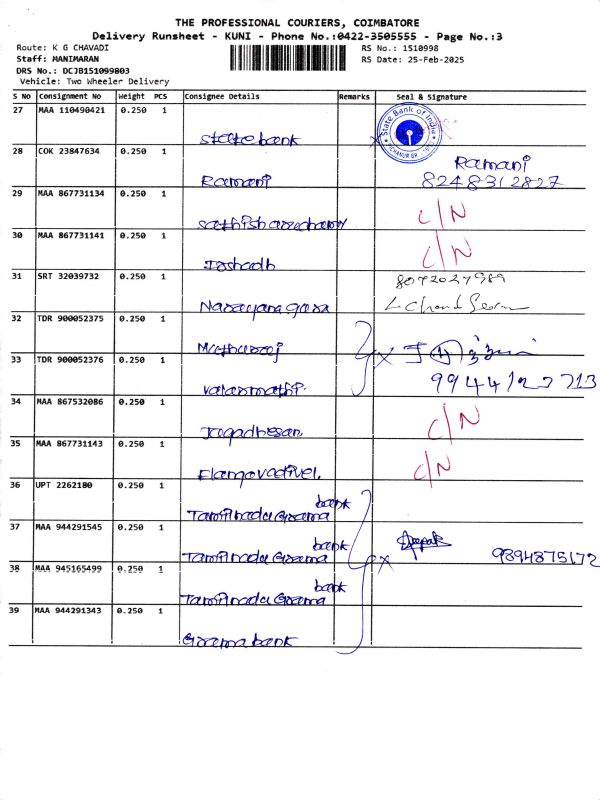 THE PROFESSIONAL COURIERS, COIMBATORE
Delivery Runsheet - KUNI - Phone No.:0422-3505555 - Page No.:3
Route: K G CHAVADI RS No.: 1510998
Staff: MANIMARAN RS Date: 25-Feb-2025
DRS No.: DCJB151099803
Vehicle: Two Wheeler Delivery
S No Consignment No Weight PCS Consignee Details Remarks Seal & Signature
27 MAA 110490421 0.250 1 State bank State Bank of India
28 COK 23847634 0.250 1 Ramani Ramani
8248312827
29 MAA 867731134 0.250 1 C/N
30 MAA 867731141 0.250 1 C/N
31 SRT 32039732 0.250 1 8072027989
32 TDR 900052375 0.250 1 Muthuraj
33 TDR 900052376 0.250 1 Valarmathi. 9944127713
34 MAA 867532086 0.250 1 C/N
35 MAA 867731143 0.250 1 Elangovadivel. C/N
36 UPT 2262180 0.250 1 Tamilnadu Grama bank
37 MAA 944291545 0.250 1 Tamilnadu Grama bank x Deepak 9894875172
38 MAA 945165499 0.250 1 Tamilnadu Grama bank
39 MAA 944291343 0.250 1 Grama bank